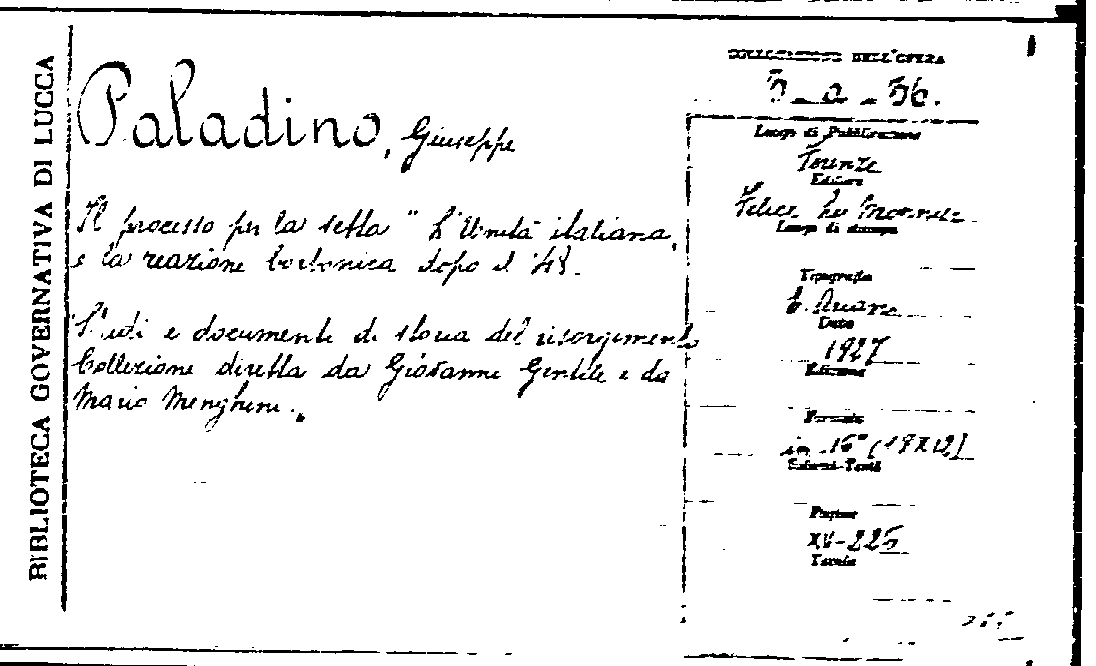 BIBLIOTECA GOVERNATIVA DI LUCCA
Paladino, Giuseppe
Il processo per la setta "L'Unità italiana,
e la reazione borbonica dopo il '48.
Studi e documenti di storia del risorgimento
Collezione diretta da Giovanni Gentile e da
Mario Menghini.
COLLOCAZIONE DELL'OPERA
Luogo di Pubblicazione
Firenze
Editore
Felice Le Monnier
Luogo di stampa
Tipografia
E. Ariani
Data
1927
Edizione
Formato
in 16° (19X12)
Pagine
XV-225